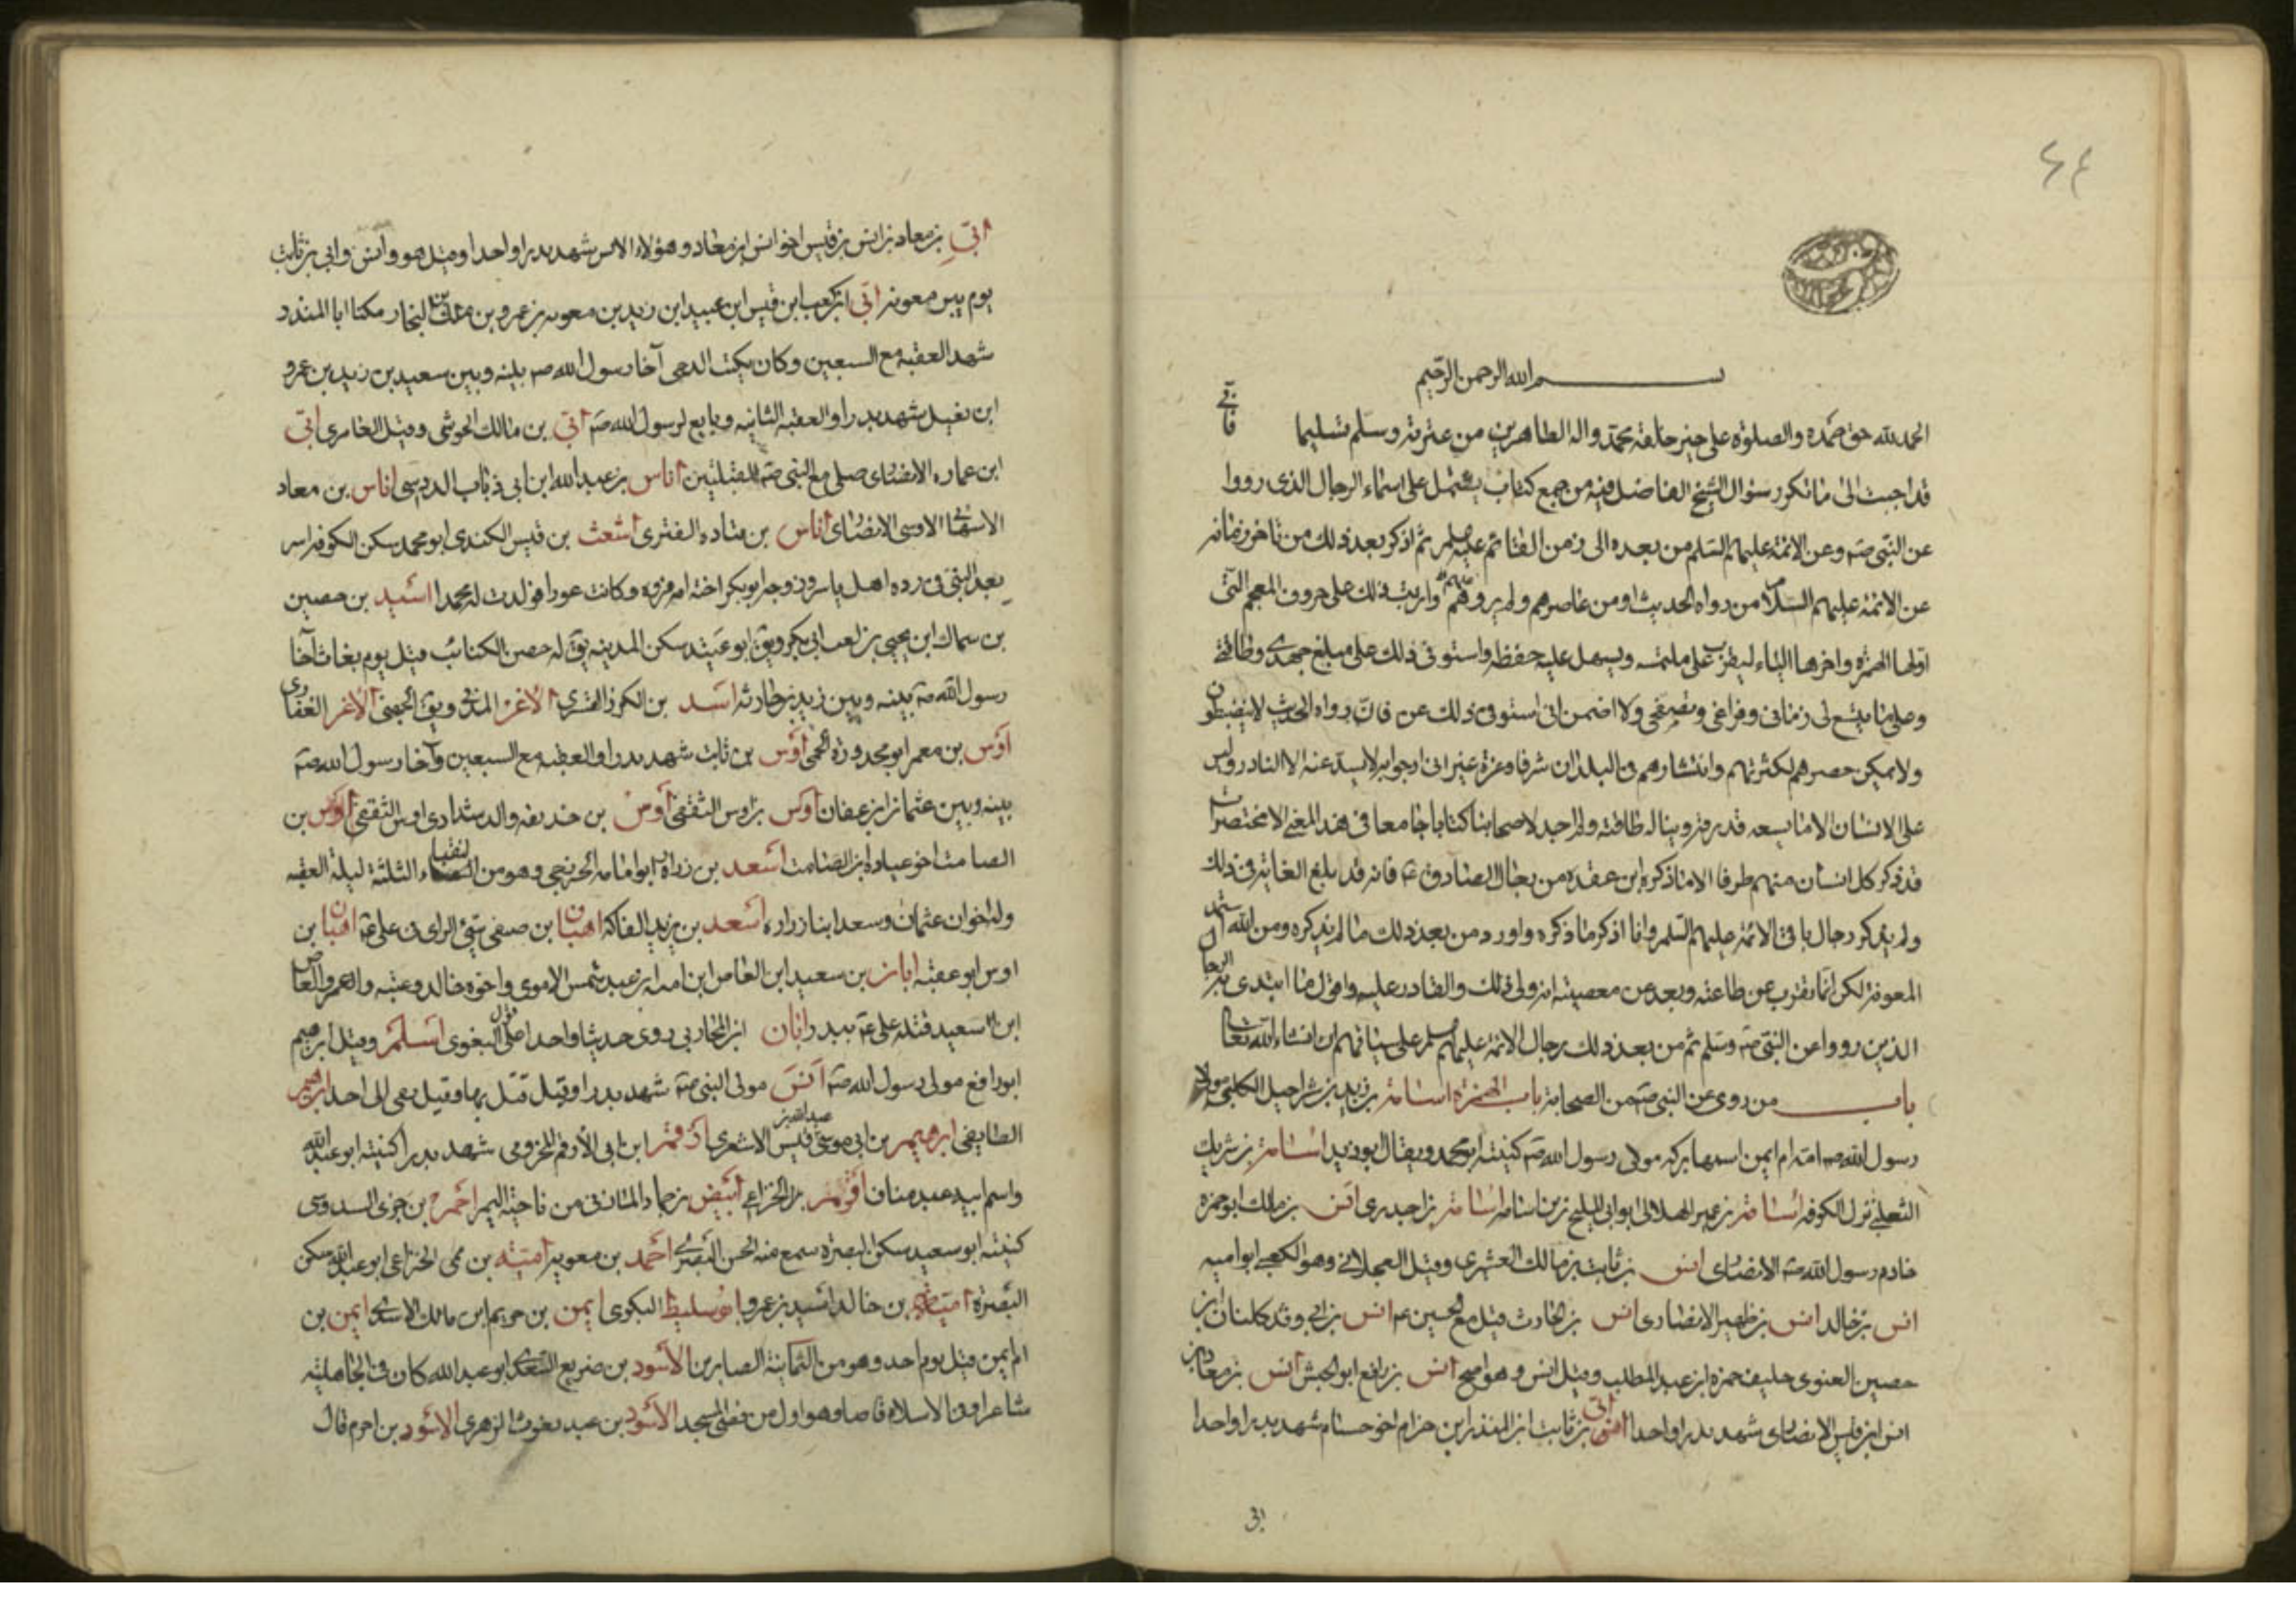 ٤٤
بسم الله الرحمن الرحيم
الحمد لله حق حمده والصلوة على خير خلقه محمد واله الطاهرين من عترته وسلم تسليما فانى
قد اجبت الى ما تكرر سؤال الشيخ الفاضل فيه من جمع كتاب يشتمل على اسماء الرجال الذى رووا
عن النبى صه وعن الائمة عليهم السلم من بعده الى زمن القائم عليه سلم ثم اذكر بعد ذلك من تاخر زمانه
عن الائمة عليهم السلام من رواه الحديث او من عاصرهم ولم يرو عنهم وارتب ذلك على حروف المعجم التى
اولها الهمزة واخرها الياء ليقرب على ملتمسه ويسهل عليه حفظه واستوفى ذلك على مبلغ جهدى وطاقتى
وعلى ما يتسع لى زمانى وفراغى وتصفحى ولا اضمن انى استوفى ذلك عن فان رواه الحديث لا ينضبطون
ولا يمكن حصرهم لكثرتهم وانتشارهم فى البلدان شرقا وغربا غير انى ارجو انه لا يشذ عنه الا النادر وليس
على الانسان الا ما يسعه قدرته ويناله طاقته ولم اجد لاصحابنا كتابا جامعا فى هذا المعنى الا مختصرات
قد ذكر كل انسان منهم طرفا الا ما ذكره ابن عقده من رجال الصادق ع فانه قد بلغ الغاية فى ذلك
ولم يذكر رجال باقى الائمة عليهم السلم وانا اذكر ما ذكره واورد من بعد ذلك ما لم يذكره ومن الله استمد
المعونة لكل ما يقرب من طاعته ويبعد عن معصيته انه ولى ذلك والقادر عليه واول ما ابتدى به الرجال
الذين رووا عن النبى صه وسلم ثم من بعد ذلك رجال الائمة عليهم سلم على سياقهم ان انشاء الله تعا
باب من روى عن النبى صه من الصحابة باب الهمزة اسامة بن زيد بن شراحيل الكلبى مولى
رسول الله صه امه ام ايمن اسمها بركه مولى رسول الله صه كنيته ابو محمد ويقال ابو زيد اسامة بن شريك
الثعلبى نزل الكوفه اسامة بن عمير الهذلى ابو ابى المليح بن اسامه اسامة بن اخدرى انس بن مالك ابو حمزه
خادم رسول الله صه الانصاى انس بن ثابت بن مالك القشيرى وقيل العجلانى وهو الكعبى ابو اميه
انس بن خالد انس بن ظهير الانصارى انس بن الحارث قتل مع الحسين عم انس بن ابى وقد كلنان ابن
حصين الغنوى حليف حمزه ابن عبد المطلب وقيل انس وهو اصح انس بن رافع ابو الجيش انس بن معاذ بن
انس ابن قيس الانصاى شهد بدرا واحدا ابى بن ثابت ابن المنذر ابن حزام اخو حسان شهد بدرا واحدا
ابى
ابى بن معاد بن انس بن قيس اخو انس ابن معاد وهؤلاء الانس شهد بدرا واحدا وقتل هو وانس وابى بن ثابت
يوم بير معونه ابى ابن كعب ابن قيس ابن عبيد ابن زيد بن معويه بن عمرو بن مالك بن النجار مكنا ابا المندر
شهد العقبه مع السبعين وكان يكتب الوحى آخا رسول الله صه بينه وبين سعيد بن زيد بن عمرو
ابن نفيل شهد بدرا والعقبه الثانيه وبايع لرسول الله صه ابى بن مالك الحوشى وقيل العامرى ابى
ابن عماره الانصاى صلى مع النبى صه للقبلتين اناس بن عبد الله ابن ابى ذباب الدوسى اناس بن معاد
الاشهلى الاوسى الانصاى اناس بن قتاده الغنزى اشعث بن قيس الكندى ابو محمد سكن الكوفه اسر
بعد النبى فى رده اهل ياسر وزوجه ابو بكر اخته ام فروه وكانت عورا فولدت له محمدا اسيد بن حصين
بن سماك ابن يحيى ويق ابو عتيد سكن المدينه يق له حصن الكتائب قتل يوم بغاث آخا
رسول الله صه بينه وبين زيد بن حارثه اسد بن الكرز القسرى الاغر المدنى ويق الجهنى الاغر الغفارى
اوس بن معمر ابو محدوره الجمحى اوس بن ثابت شهد بدرا والعقبه مع السبعين وآخا رسول الله صه
بينه وبين عثمان ابن عفان اوس بن اوس الثقفى اوس بن حذيفه والد شداد اوس الثقفى اوس بن
الصامت اخو عباده ابن الصامت اسعد بن زراه ابو امامه الخزرجى وهو من النقباء الثلثة ليلة العقبه
ولاخوان عثمان وسعد ابنا زراره اسعد بن يزيد الفاكه اهبان بن صيفى سيئ الراى فى على ع اهبان بن
اوس ابو عقبه ابان بن سعيد ابن العاص ابن اميه ابن عبد شمس الاموى واخوه خالد وعتبه والعمرو العاص
ابن سعيد قتله على ع ببدر ابان المحاربى روى حديثا واحدا قول البغوى اسلم وقيل ابرهيم
ابو رافع مولى رسول الله صه انس مولى النبى صه شهد بدرا وقيل قتل بها وقيل بقى الى احد ابرهيم
الطايفى ابرهيم بن ابى موسى عبد الله بن قيس الاشعرى ارقم ابن ابى الارقم المخزومى شهد بدرا كنيته ابو عبد الله
واسم ابيه عبد مناف اقرم بن الخزاعى ابيض بن حماد المازنى من ناحية اليمن احمر بن جزى السدوسى
كنيته ابو سعيد سكن البصره سمع منه الحسن البصرى احمد بن معويه امية بن مخشى الخزاعى ابو عبد الله سكن
البصره امية بن خالد اسيد بن عمرو ابو سليط البكرى ايمن بن خريم ابن مالك الاسدى ايمن بن
ام ايمن قتل يوم احد وهو من الثمانية الصابرين الاسود بن ضريع السعدى ابو عبد الله كان فى الجاهلية
شاعرا وفى الاسلام قاصا وهو اول من قص فى المسجد الاسود بن عبد يغوث الزهرى الاسود بن اصرم قال